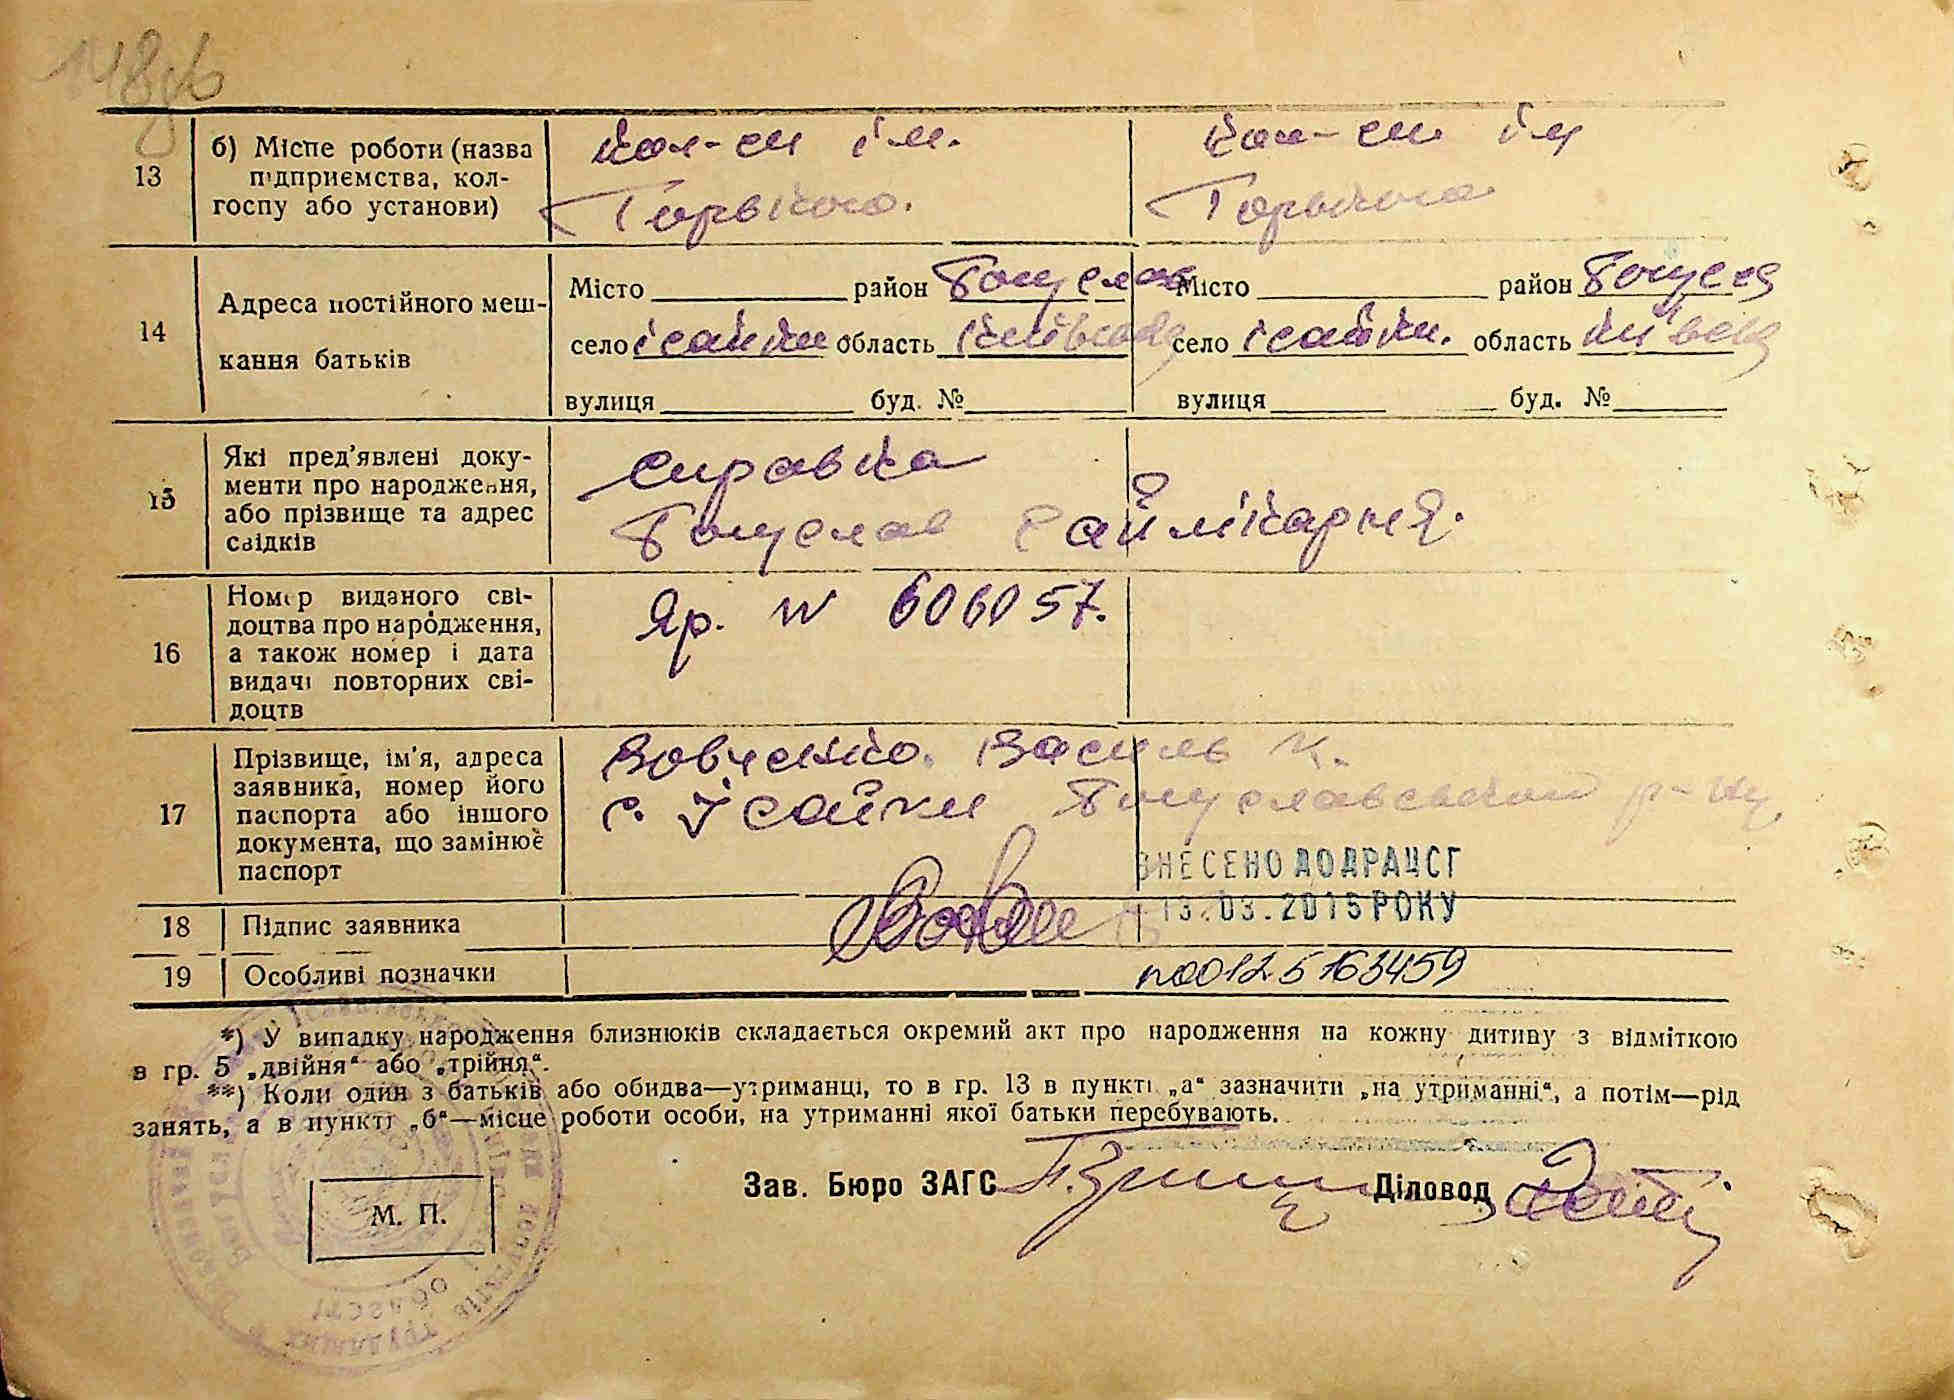 148зв
13
б) Місце роботи (назва
підприємства, кол-
госпу або установи)
кол-сп ім.
Горького.
кол-сп ім
Горького
14
Адреса постійного меш-
кання батьків
Місто район Богуслав
село Ісайки область Київська
вулиця буд. №
Місто район Богусл
село Ісайки. область Київськ
вулиця буд. №
15
Які пред'явлені доку-
менти про народження,
або прізвище та адрес
свідків
справка
Богуслав райлікарня.
16
Номер виданого сві-
доцтва про народження,
а також номер і дата
видачі повторних сві-
доцтв
Яр. № 606057.
17
Прізвище, ім'я, адреса
заявника, номер його
паспорта або іншого
документа, що замінює
паспорт
Вовченко. Василь К.
с. Ісайки Богуславський р-ну
ВНЕСЕНО ДО ДРАЦСГ
13.03.2015 РОКУ
18
Підпис заявника
19
Особливі позначки
п00125163459
*) У випадку народження близнюків складається окремий акт про народження на кожну дитину з відміткою
в гр. 5 „двійня“ або „трійня“.
**) Коли один з батьків або обидва—утриманці, то в гр. 13 в пункті „а“ зазначити „на утриманні“, а потім—рід
занять, а в пункті „б“—місце роботи особи, на утриманні якої батьки перебувають.
Зав. Бюро ЗАГС
Діловод
М. П.